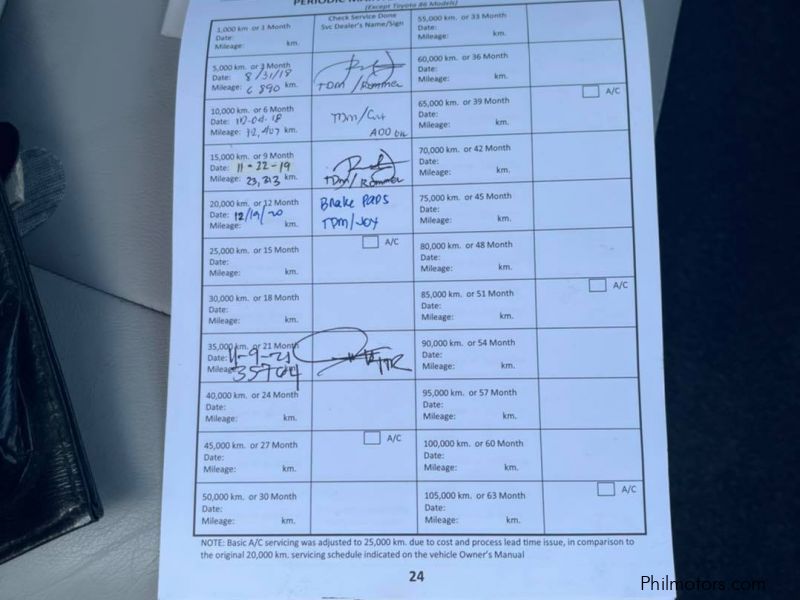 PERIODIC
(Except Toyota 86 Models)
Check Service Done
Svc Dealer's Name/Sign
1,000 km or 1 Month
Date:
Mileage: km.
5,000 km. or 3 Month
Date: 8/31/18
Mileage: 6 890 km.
TDM /Rommer
10,000 km. or 6 Month
Date:
Mileage: km.
15,000 km. or 9 Month
Date: 11-22-19
Mileage: 23,213 km.
TDM/ Rommer
20,000 km. or 12 Month
Date: 12/19/20
Mileage: km.
Brake PADS
TDM/JOY
25,000 km. or 15 Month
Date:
Mileage: km.
A/C
30,000 km. or 18 Month
Date:
Mileage: km.
35,000 km. or 21 Month
Date: 11-9-21
Mileage: 35764
40,000 km. or 24 Month
Date:
Mileage: km.
45,000 km. or 27 Month
Date:
Mileage: km.
A/C
50,000 km. or 30 Month
Date:
Mileage: km.
55,000 km. or 33 Month
Date:
Mileage: km.
60,000 km. or 36 Month
Date:
Mileage: km.
65,000 km. or 39 Month
Date:
Mileage: km.
A/C
70,000 km. or 42 Month
Date:
Mileage: km.
75,000 km. or 45 Month
Date:
Mileage: km.
80,000 km. or 48 Month
Date:
Mileage: km.
85,000 km. or 51 Month
Date:
Mileage: km.
A/C
90,000 km. or 54 Month
Date:
Mileage: km.
95,000 km. or 57 Month
Date:
Mileage: km.
100,000 km. or 60 Month
Date:
Mileage: km.
105,000 km. or 63 Month
Date:
Mileage: km.
A/C
NOTE: Basic A/C servicing was adjusted to 25,000 km. due to cost and process lead time issue, in comparison to
the original 20,000 km. servicing schedule indicated on the vehicle Owner's Manual
24
Philmotors.com